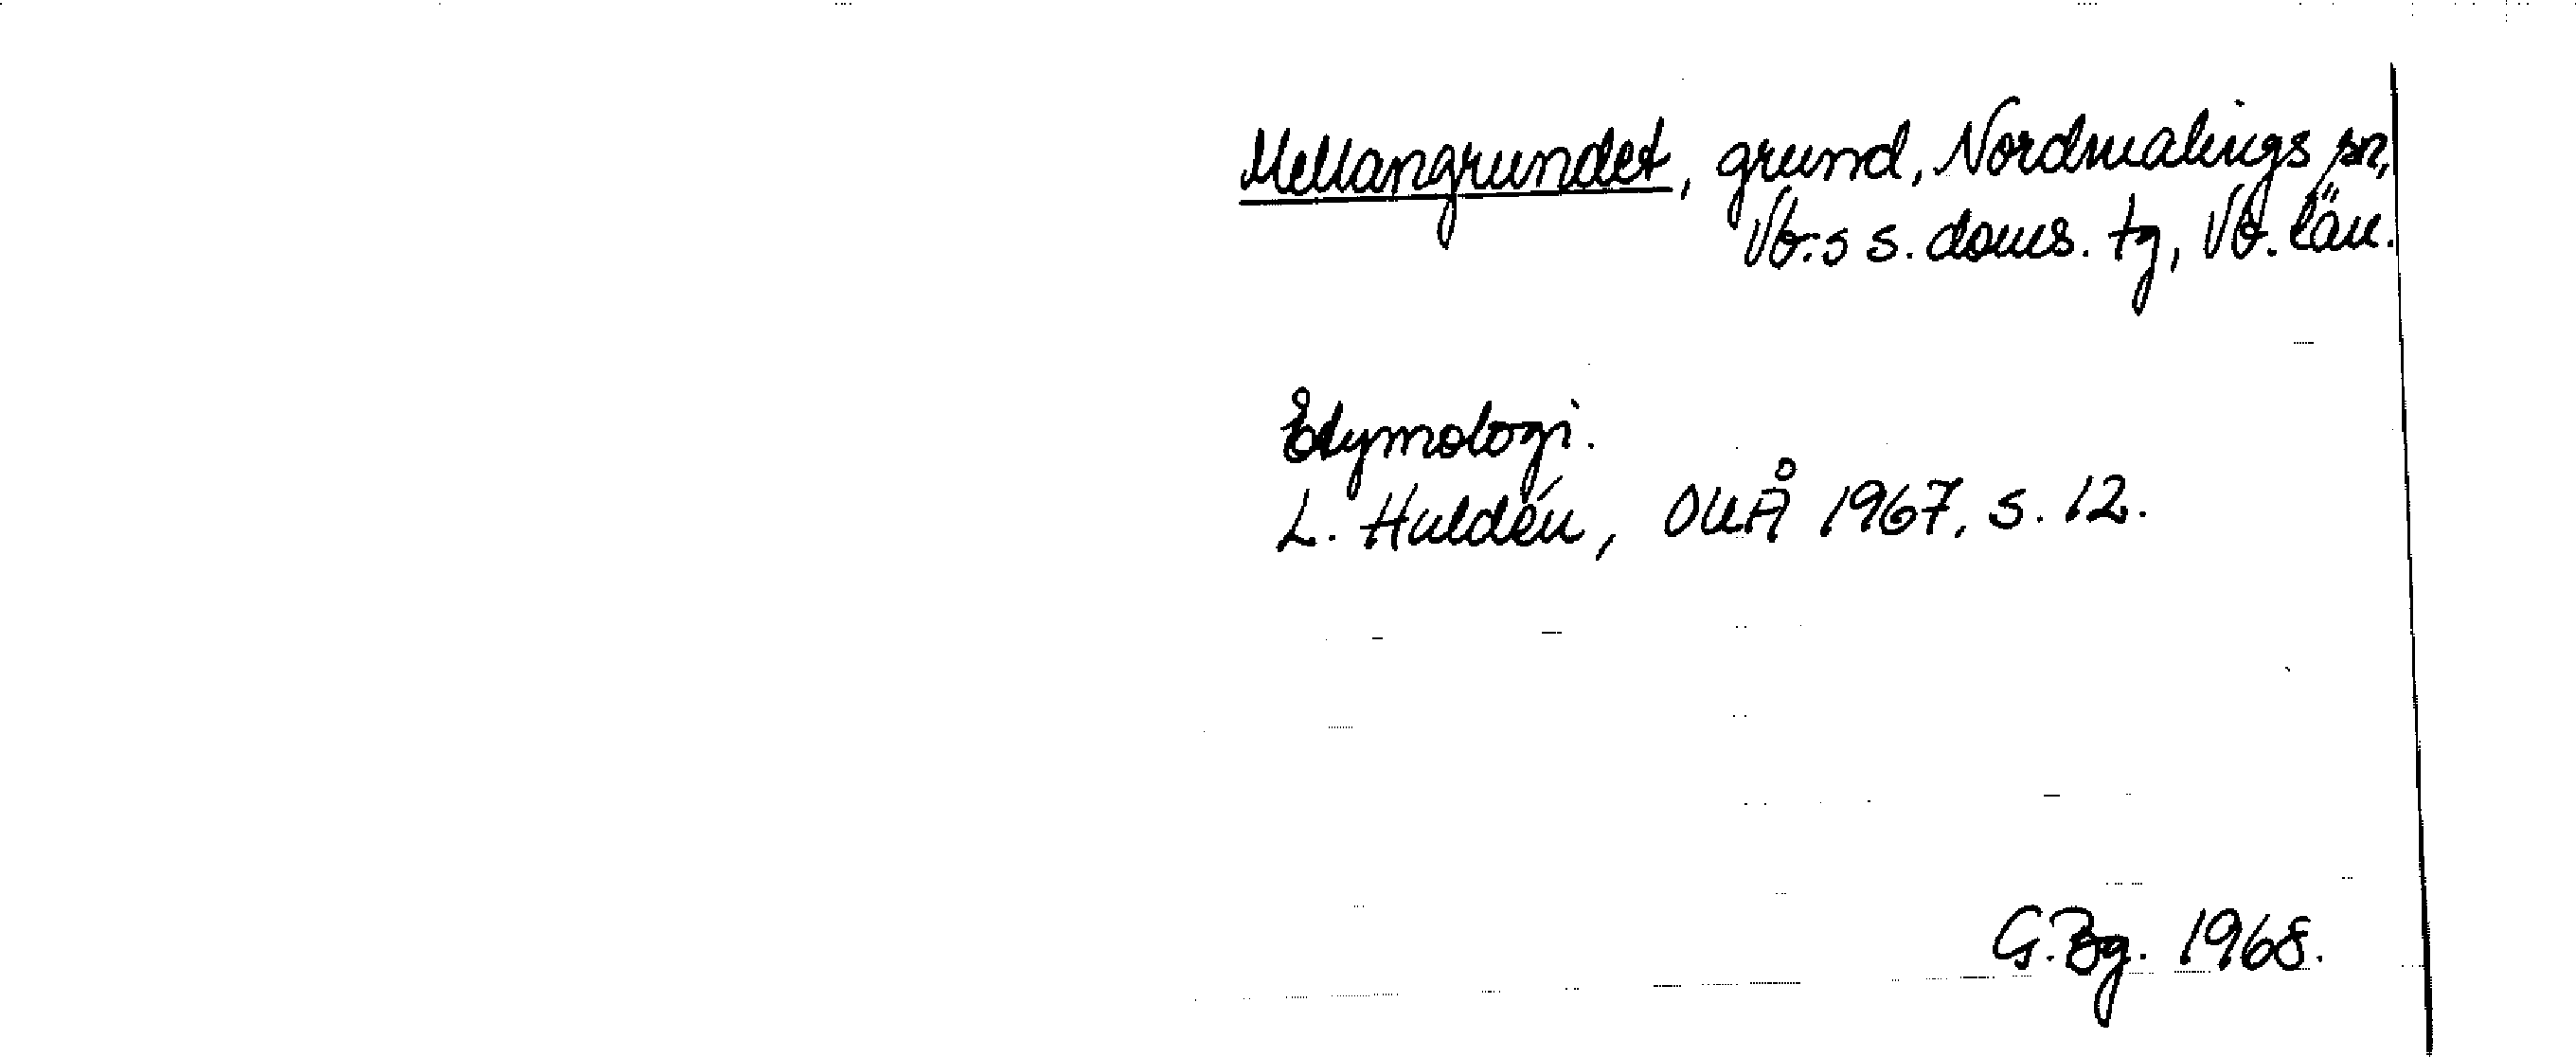 Mellangrundet, grund, Nordmalings sn,
Vb:s s. doms. tg, Vb. län.
Etymologi.
L. Huldén, OUÅ 1967, s. 12.
G. Bg. 1968.